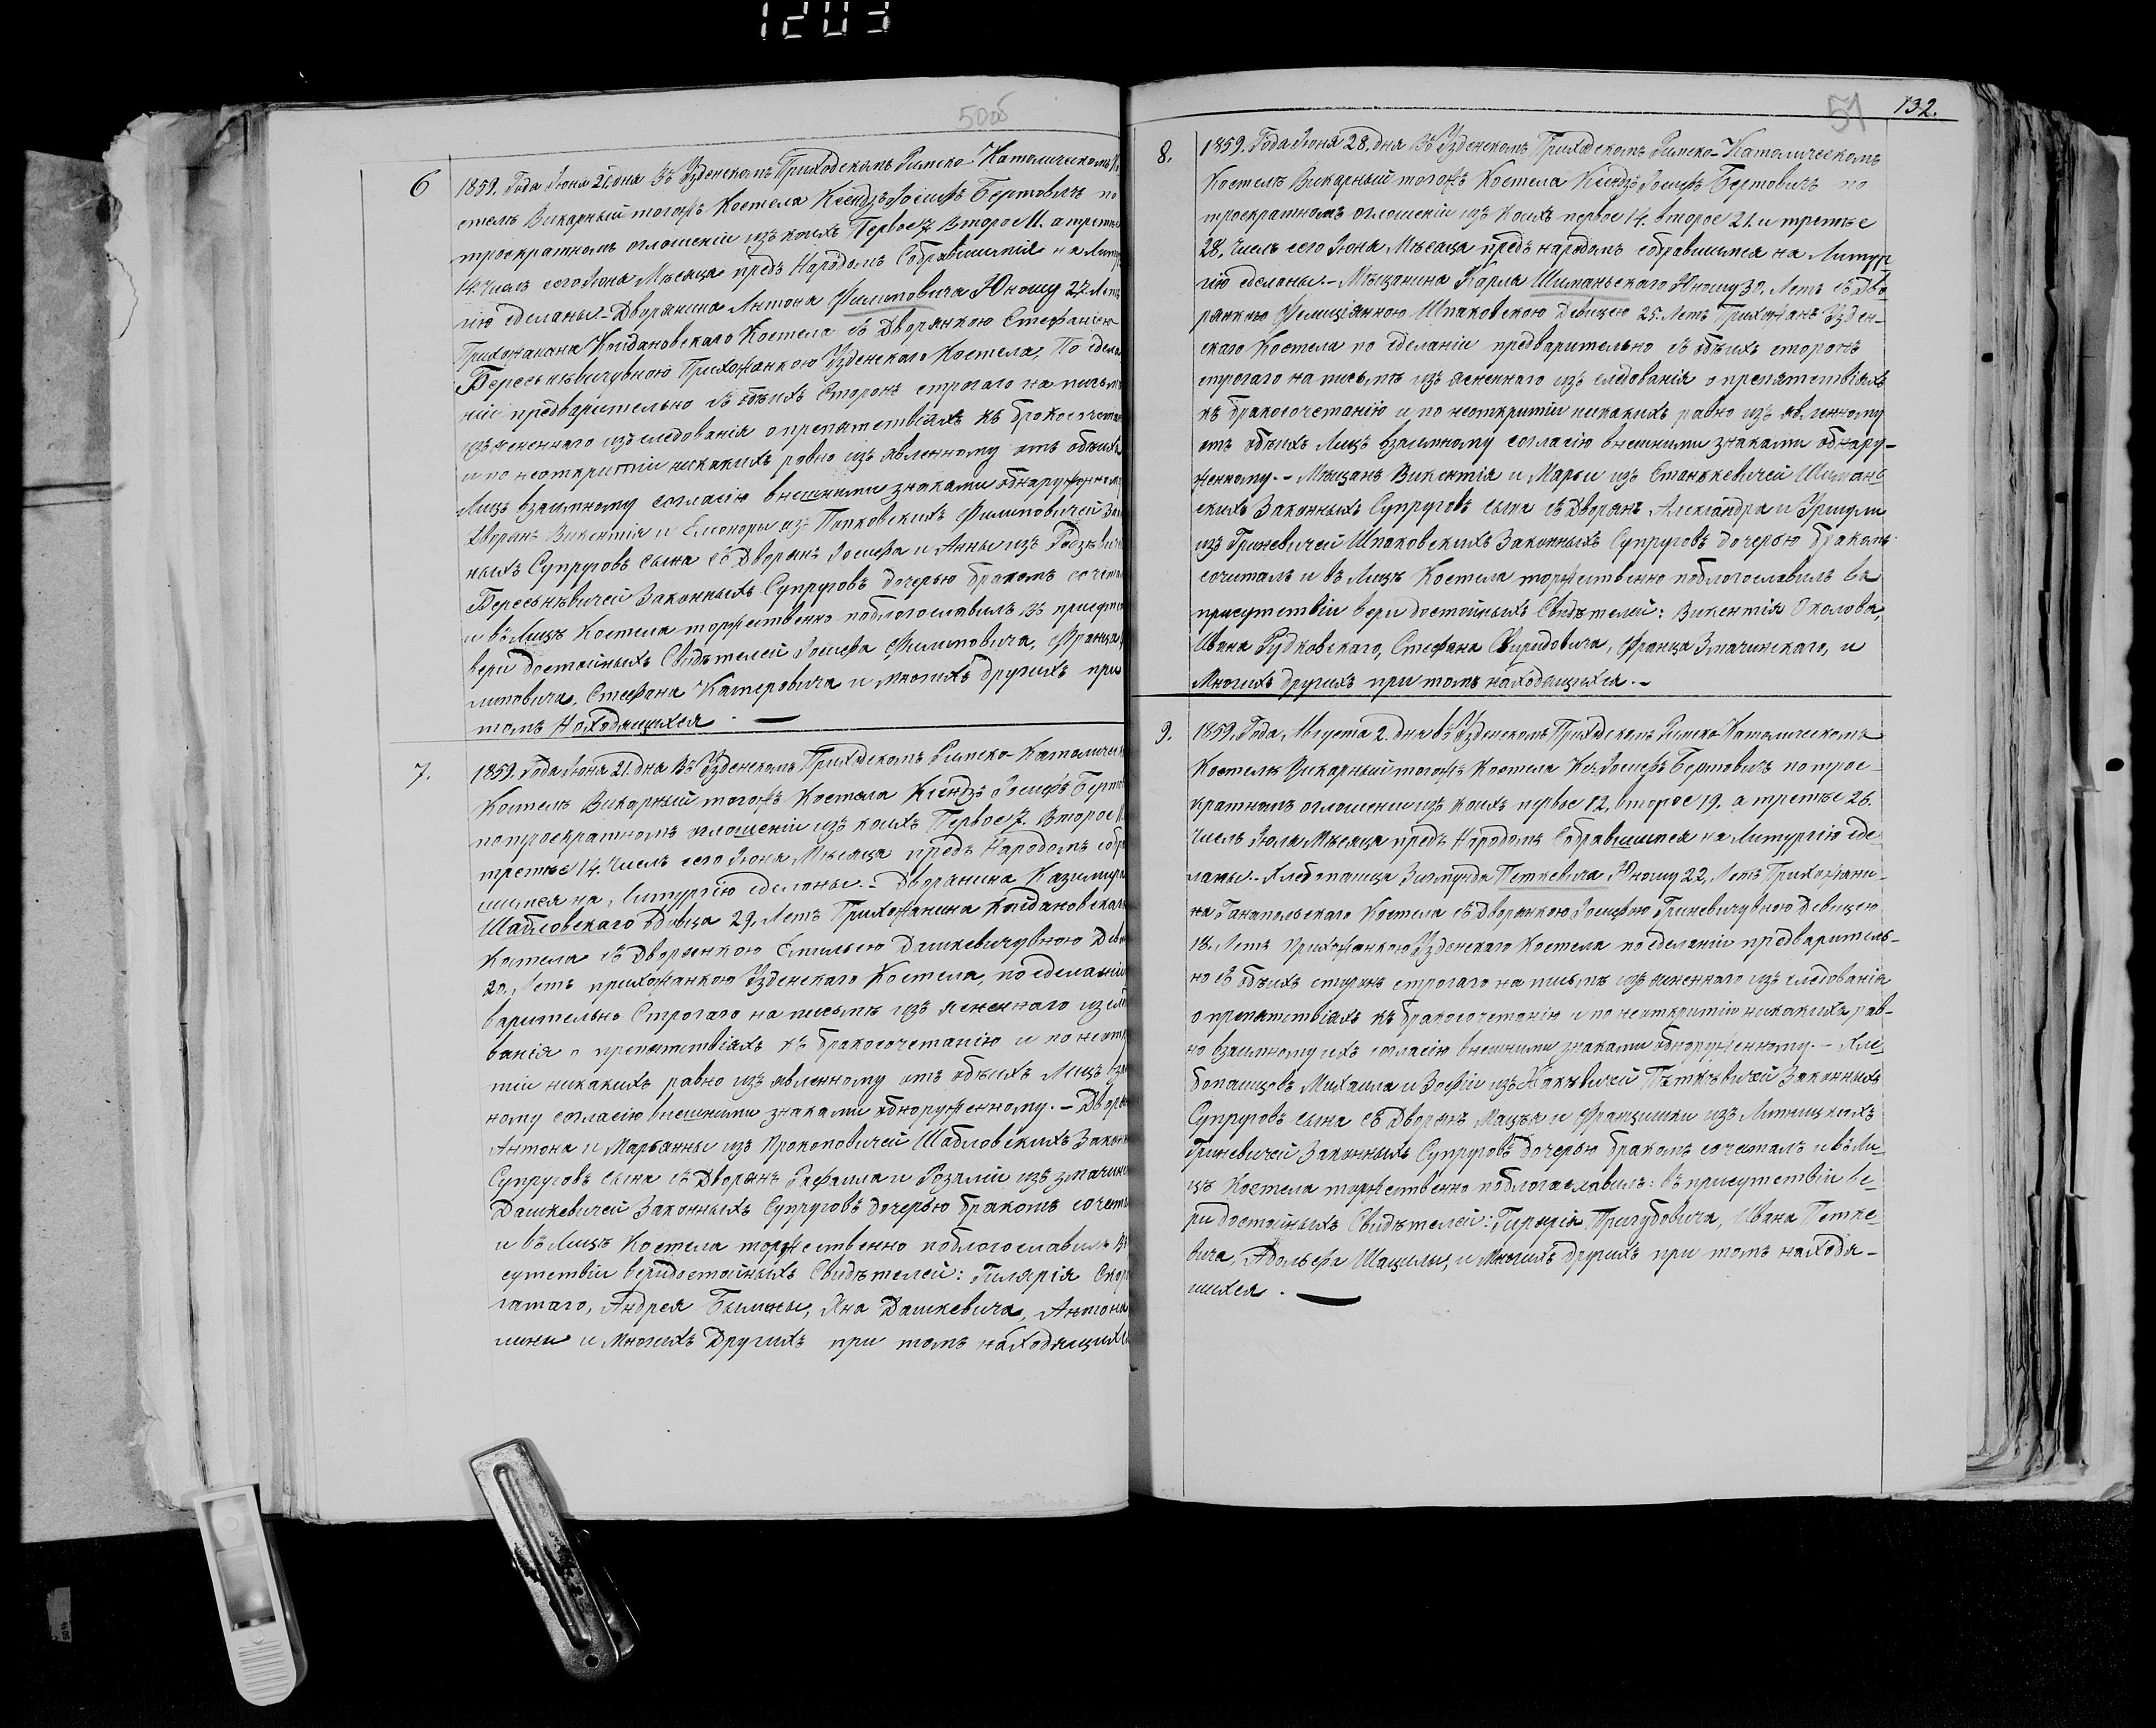 1203
50об
6
1859. Года Июня 21. дня Въ Узденскомъ Приходскомъ Римско-Католическомъ Ко
стелѣ Викарный тогожъ Костела Ксёндзъ Іосифъ Бертовичъ по
троекратномъ оглошеніи изъ коихъ Первое 7. Второе 11. а третье
14. Числъ сего Іюня Мѣсяца предъ Народомъ Собравшимся на Литур
гію сделаны - Дворянина Антона Филиповича Юношу 27. Летъ
Прихожанина Койдановскаго Костела съ Дворянкою Стефаніею
Прихожанкою Узденскаго Костела, По сдела
ніи предварительно съ обѣихъ Сторонъ строгаго на письмѣ
изъясненнаго изследованія о препятствіяхъ къ бракосочета
и по неоткрытіи никакихъ равно изъявленному отъ обѣихъ
Лицъ взаимному согласію внешними знаками обнаруженному
Дворянъ Викентія и Елеоноры изъ Пятковскихъ Филиповичей Зако
ныхъ Супруговъ сына съ Дворянъ Іосифа и Анны изъ
Законныхъ Супруговъ дочерью бракомъ сочета
и въ Лицѣ Костела торжественно поблогославилъ въ присутс
вери достойныхъ Свидѣтелей Іосифа Филиповича, Франца
липовича, Стефана и многихъ другихъ при
томъ Находящихся. —
7.
1859. Года Іюня 21. дна Въ Узденскомъ Приходскомъ Римско-Католичес
Костелѣ Викарный тогожъ Костела Ксёндзъ Іосифъ Берто
по троекратномъ оглошеніи изъ коихъ Первое 7. Второе 11
третье 14. Числъ сего Іюня Мѣсяца предъ Народомъ собр
шимся на Литургію сделаны. - Дворянина Казимира
Шабловскаго вдовца 29. Летъ Прихожанина Койдановскаго
Костела съ Дворянкою Емилью Дашкевичувною Деви
20. Летъ прихожанкою Узденскаго Костела, по сделаніи
варительно Строгаго на письмѣ изъясненнаго изслѣ
ванія о препятствіяхъ къ бракосочетанію и по неотк
тіи никакихъ равно изъявленному отъ обѣихъ Лицъ вза
ному согласію внешними знаками обноруженному. - Дворя
Антона и Марьянны изъ Прокоповичей Шабловскихъ Законн
Супруговъ сына съ Дворянъ Рафаила и Розаліи изъ
Дашкевичей Законныхъ Супруговъ дочерью бракомъ сочета
и въ Лицѣ Костела торжественно поблогославилъ въ
сутствіи веридостойныхъ Свидѣтелей: Гилярія
гатаго, Андрея Былины, Яна Дашкевича, Антона
лины и Многихъ Другихъ при томъ находящихся
51
132.
8.
1859. Года Іюня 28. дня Въ Узденскомъ Приходскомъ Римско-Католическомъ
Костелѣ Викарный тогожъ Костела Ксёндзъ Іосифъ Бертовичъ по
троекратномъ оглошеніи изъ коихъ первое 14. второе 21. и третье
28. Числъ сего Іюня Мѣсяца предъ народомъ собравшимся на Литур
гію сделаны. - Мѣщанина Карла Шиманьскаго Юношу 30. Летъ съ Дво
рянкою Фелиціянною Шпаковскою Девицею 25. Летъ Прихожанъ Узден-
скаго Костела по сделаніи предварительно съ обѣихъ сторонъ
строгаго на письмѣ изъясненнаго изъследованія о препятствіяхъ
къ бракосочетанію и по неоткрытіи никакихъ равно изъявленному
отъ обѣихъ Лицъ взаимному согласію внешними знаками обнару-
женному. - Мѣщанъ Викентія и Марьи изъ Станкевичей Шимань
скихъ Законныхъ Супруговъ сына съ Дворянъ Александра и Уршули
изъ Гриневичей Шпаковскихъ Законныхъ Супруговъ дочерью бракомъ
сочиталъ и въ Лицѣ Костела торжественно поблогославилъ въ
присутствіи вери достойныхъ Свидѣтелей: Викентія Околова,
Ивана Рудковскаго, Стефана Свиридовича, Франца Змачинскаго, и
Многихъ другихъ при томъ находящихся. -
9.
1859. Года, Августа 2. дня въ Узденскомъ Приходскомъ Римско-Католическомъ
Костелѣ Викарный тогожъ Костела Кс. Іосифъ Бертовичъ по трое-
кратномъ оглошении изъ коихъ первое 12, второе 19. а третье 26.
Числъ Іюля Мѣсяца предъ Народомъ Собравшимся на Литургію сде-
ланы. - Хлебопашца Зигмунда Петкевича Юношу 22, Летъ Прихожани-
на Костела съ Дворянкою Іосифою Гриневичувною Девицею
18. Летъ прихожанкою Узденскаго Костела по сделаніи предваритель-
но съ обѣихъ сторонъ строгаго на письмѣ изъясненнаго изъследованія
о препятствіяхъ къ бракосочетанію и по неоткрытіи никакихъ рав-
но взаимному ихъ согласію внешними знаками обноруженному. - Хле-
бопашцовъ Михаила и Зофіи изъ Петкѣвичей Законныхъ
Супруговъ сына съ Дворянъ Мацѣя и Францишки изъ
Гриневичей Законныхъ Супруговъ дочерью бракомъ сочеталъ и въ Ли-
цѣ Костела торжественно поблогаславилъ: въ присутствіи ве-
ри достойныхъ Свидѣтелей: Ивана Петке
вича, Адольфа Шацилы, и Многихъ другихъ при томъ находя-
щихся. —